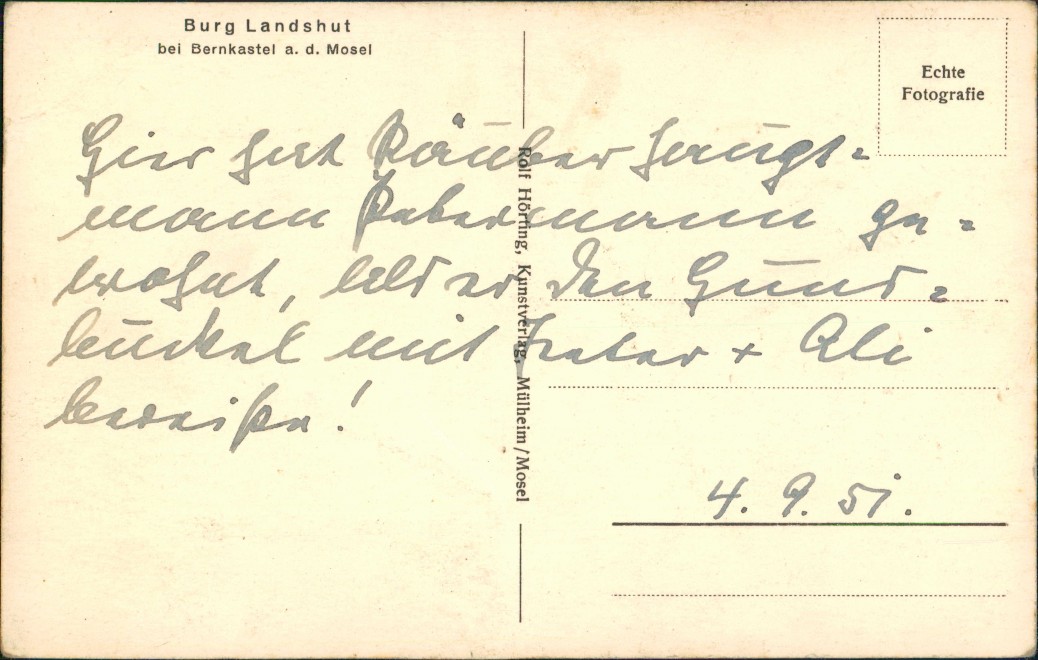 Burg Landshut
bei Bernkastel a. d. Mosel
Echte
Fotografie
Hier hat Räuberhaupt=
mann Habermann ge=
wohnt, als er den Huns=
buckel mit Peter + Ali
bereiste!
Rolf Hörting, Kunstverlag, Mülheim/Mosel
4. 9. 51.